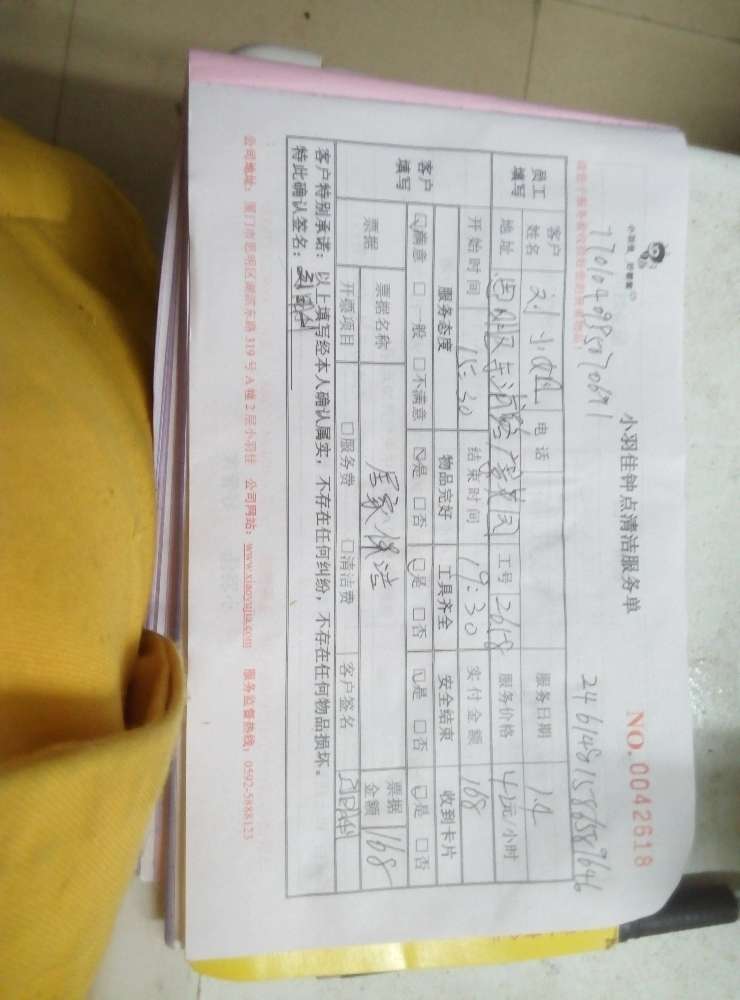 小羽佳 到家啦
小羽佳钟点清洁服务单
NO.0042618
员工填写
客户姓名 刘小姐 电话 服务日期 1.4
地址 工号 2618 服务价格 42元/小时
开始时间 15:30 结束时间 19:30 实付金额 168
客户填写
服务态度 物品完好 工具齐全 安全结束 收到卡片
☑满意 □一般 □不满意 ☑是 □否 ☑是 □否 ☑是 □否 ☑是 □否
票据 票据名称 居家保洁 票据金额 168
开票项目 □服务费 □清洁费 客户签名
客户特别承诺：以上填写经本人确认属实，不存在任何纠纷，不存在任何物品损坏。
特此确认签名：
公司地址：厦门市思明区湖滨东路319号A幢2层小羽佳 公司网站：www.xiaoyujia.com 服务监督热线：0592-5888123